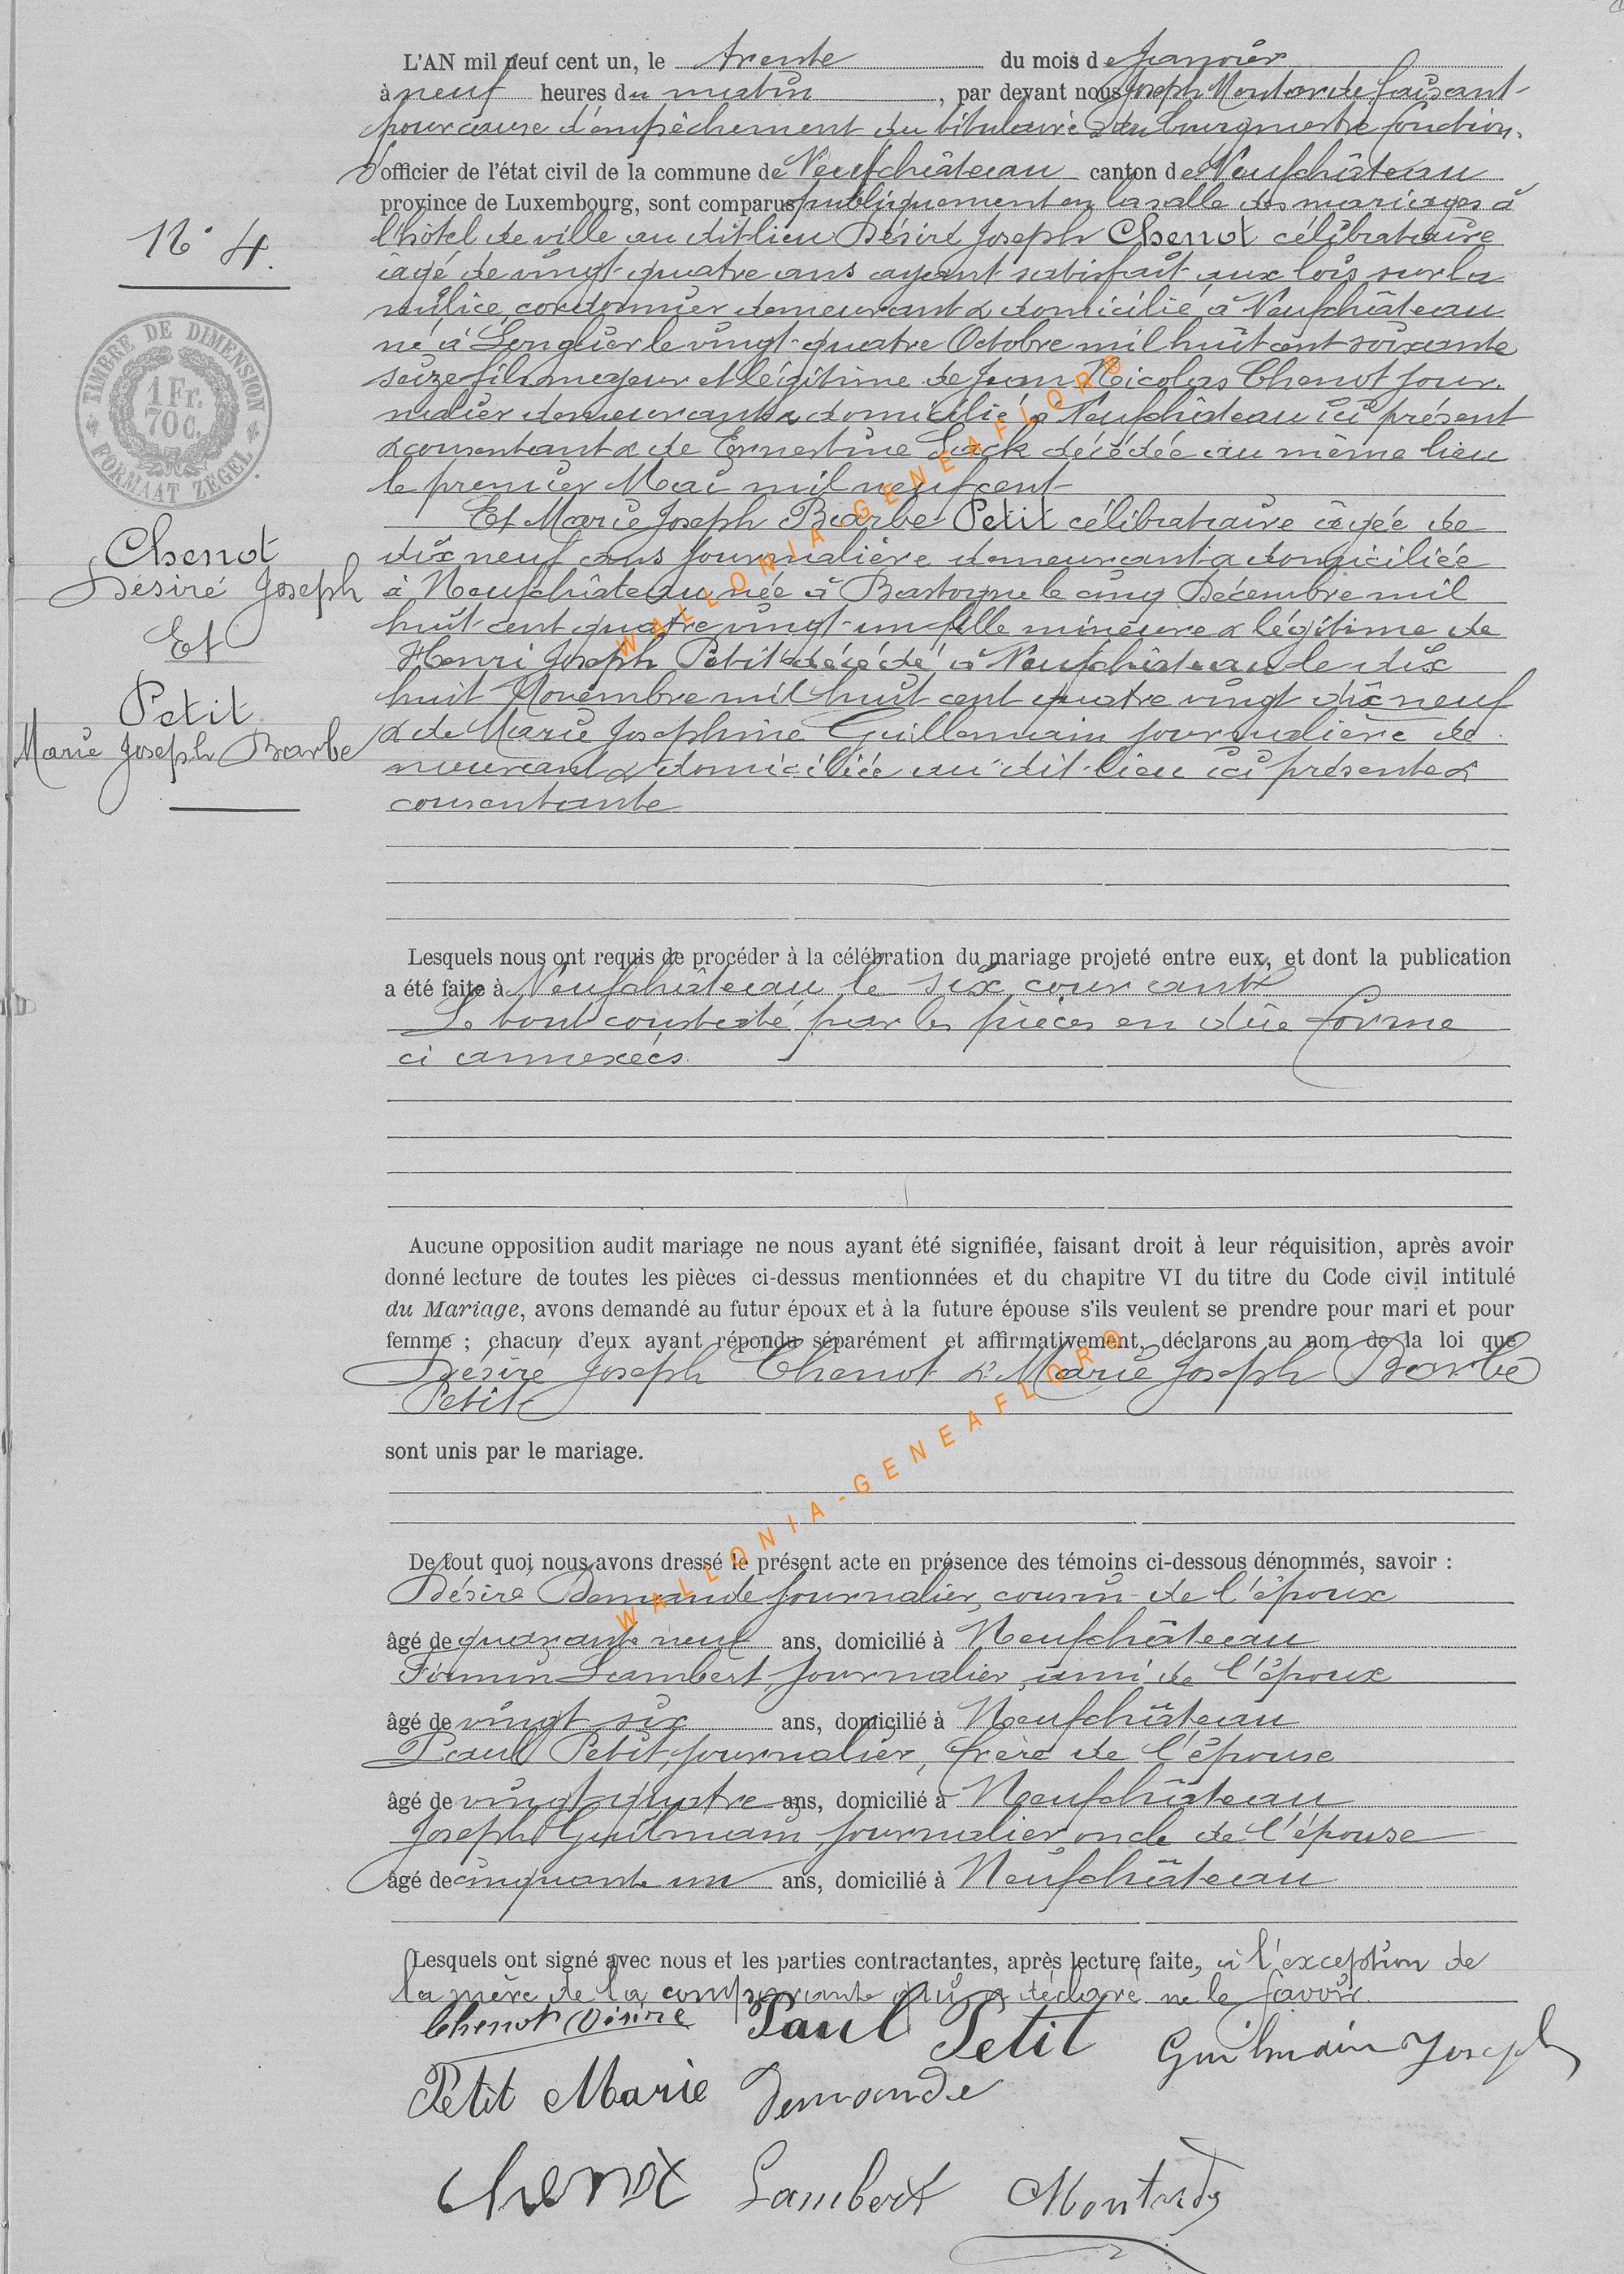 L'AN mil neuf cent un, le trente du mois de Janvier
à neuf heures du matin, par devant nous Joseph Montarde faisant
pour cause d'empêchement du titulaire & du bourgmestre fonction.
d'officier de l'état civil de la commune de Neufchâteau canton de Neufchâteau
province de Luxembourg, sont comparus publiquement en la salle des mariages à
l'hôtel de ville au dit lieu Désiré Joseph Chenot célibataire
âgé de vingt-quatre ans ayant satisfait aux lois sur la
milice, cordonnier demeurant & domicilié à Neufchâteau
né à Longlier le vingt-quatre Octobre mil huit cent soixante
seize fils majeur et légitime de Jean Nicolas Chenot jour-
nalier demeurant & domicilié à Neufchâteau ici présent
& consentant & de Ernestine Lack décédée au même lieu
le premier Mai mil neuf cent
Et Marie Joseph Barbe Petit célibataire âgée de
dix neuf ans journalière demeurant & domiciliée
à Neufchâteau née à Bastogne le cinq Décembre mil
huit cent quatre vingt-un fille mineure & légitime de
Henri Joseph Petit décédé à Neufchâteau le dix
huit Novembre mil huit cent quatre vingt dix neuf
& de Marie Josephine Guillemain journalière de
meurant & domiciliée au dit-lieu ici présente &
consentante
N° 4.
TIMBRE DE DIMENSION
1 Fr.
70 C.
* FORMAAT ZEGEL *
Chenot
Désiré Joseph
Et
Petit
Marie Joseph Barbe
WALLONIA-GENEAFLOR®
Lesquels nous ont requis de procéder à la célébration du mariage projeté entre eux, et dont la publication
a été faite à Neufchâteau le six courant
Le tout constaté par les pièces en dûe forme
ci annexées.
Aucune opposition audit mariage ne nous ayant été signifiée, faisant droit à leur réquisition, après avoir
donné lecture de toutes les pièces ci-dessus mentionnées et du chapitre VI du titre du Code civil intitulé
du Mariage, avons demandé au futur époux et à la future épouse s'ils veulent se prendre pour mari et pour
femme ; chacun d'eux ayant répondu séparément et affirmativement, déclarons au nom de la loi que
Désiré Joseph Chenot & Marie Joseph Barbe
Petit
sont unis par le mariage.
WALLONIA-GENEAFLOR®
De tout quoi, nous avons dressé le présent acte en présence des témoins ci-dessous dénommés, savoir :
Désiré Demande journalier, cousin de l'époux
âgé de quarante neuf ans, domicilié à Neufchâteau
Firmin Lambert journalier, ami de l'époux
âgé de vingt six ans, domicilié à Neufchâteau
Paul Petit, journalier, frère de l'épouse
âgé de vingt quatre ans, domicilié à Neufchâteau
Joseph Guilmain journalier oncle de l'épouse
âgé de cinquante un ans, domicilié à Neufchâteau
Lesquels ont signé avec nous et les parties contractantes, après lecture faite, à l'exception de
la mère de la comparante qui a déclaré ne le savoir.
Chenot Désiré Paul Petit Guilmain Joseph
Petit Marie Demande
Chenot Lambert